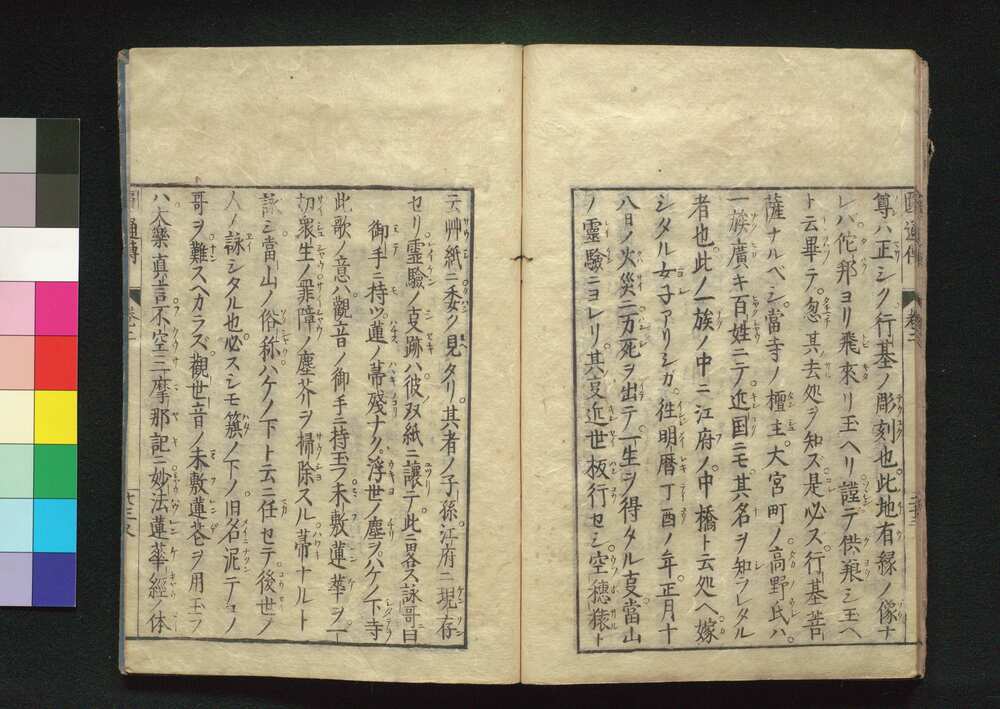 尊ハ正シク行基ノ彫刻也此地有縁ノ像ナ
レバ佗邦ヨリ飛來リ玉ヘリ謹テ供養シ玉ヘ
ト云畢テ忽其去処ヲ知ズ是必ス行基菩
薩ナルベシ當寺ノ檀主大宮町ノ高野氏ハ
一族廣キ百姓ニテ近国ニモ其名ヲ知ラレタル
者也此ノ一族ノ中ニ江府ノ中橋ト云処ヘ嫁
シタル女子アリシガ往明暦丁酉ノ年正月十
八日ノ火災ニ万死ヲ出テ一生ヲ得タル叓當山
ノ靈驗ニヨレリ其叓近世板行セシ空穂猿ト
云艸紙ニ委ク見タリ其者ノ子孫江府ニ現存
セリ靈驗ノ叓跡ハ彼双紙ニ讓テ此ニ畧ス詠哥曰
御手ニ持ツ蓮ノ箒殘ナク浮世ノ塵ヲハケノ下寺
此歌ノ意ハ觀音ノ御手ニ持玉フ未敷蓮華ヲ一
切衆生ノ罪障ノ塵芥ヲ掃除スル箒ナルト
詠シ當山ノ俗称ハケノ下ト云ニ任セテ後世ノ
人ノ詠シタル也必スシモ籏ノ下ノ旧名泥テコノ
哥ヲ難スベカラズ觀世音ノ未敷蓮花ヲ用玉フ
ハ大樂真言不空三摩那記ニ妙法蓮華經ノ体